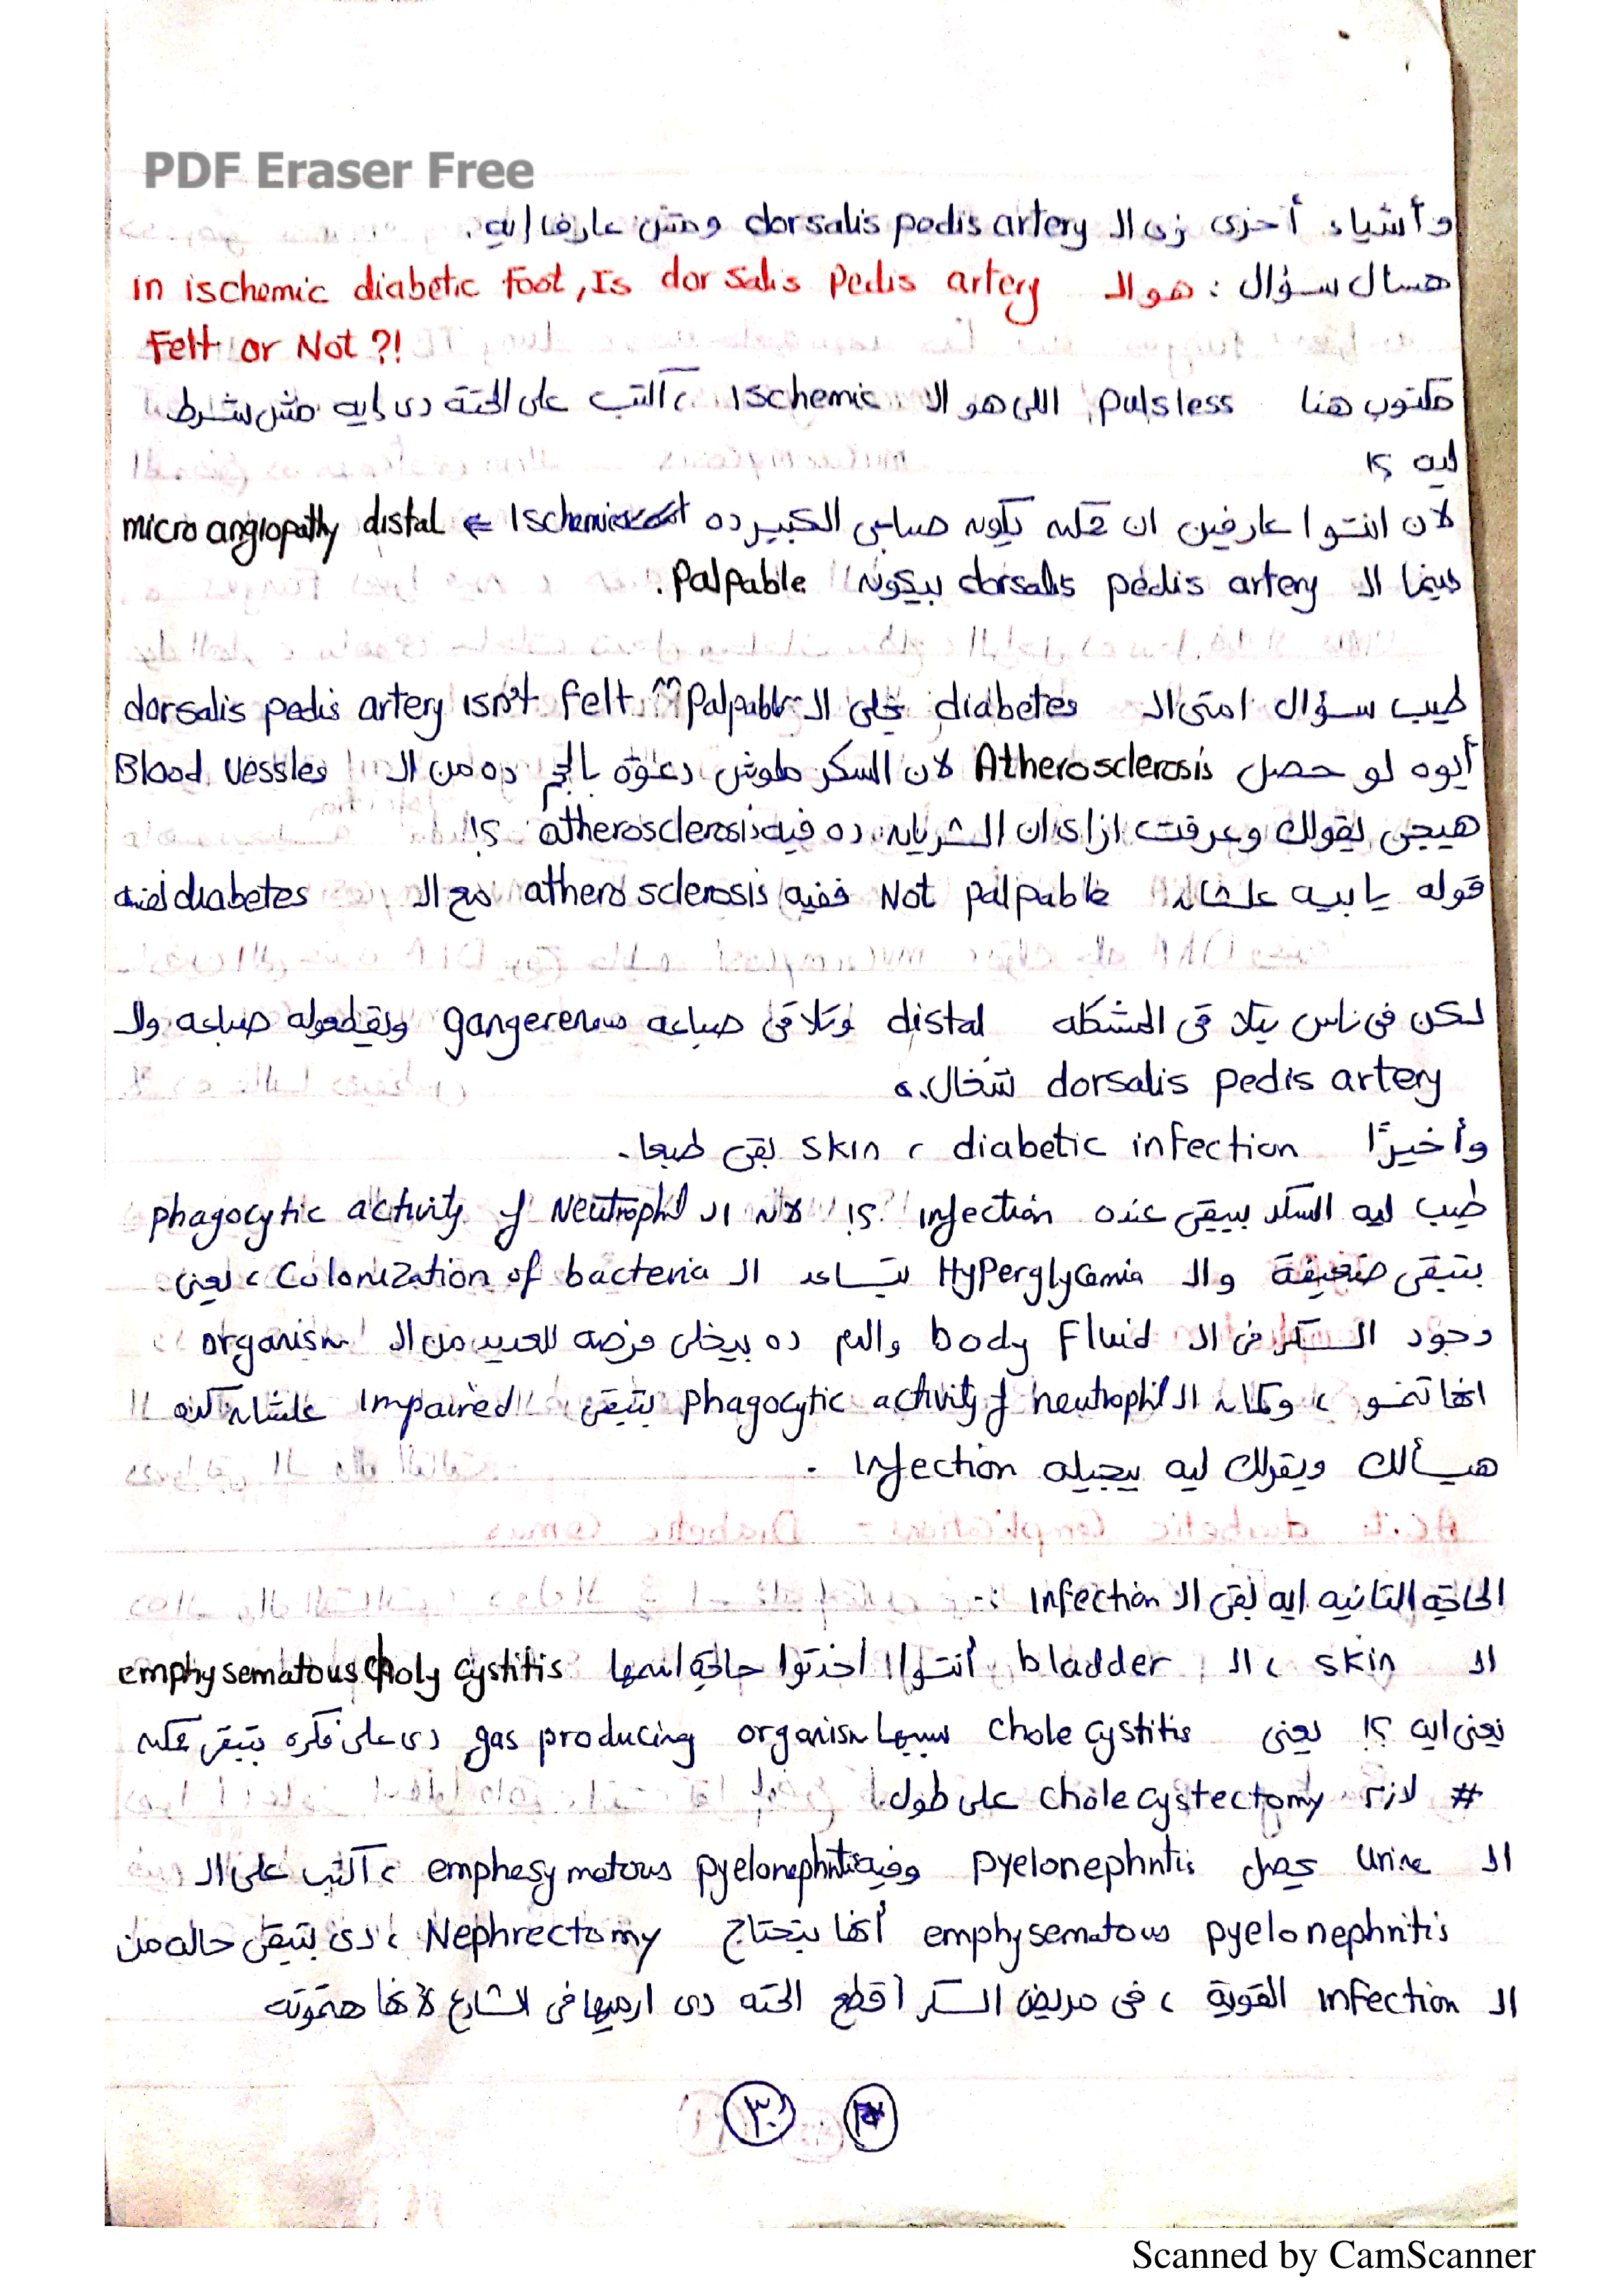 PDF Eraser Free
وأشياء أخرى زى الـ dorsalis pedis artery ومش عارف إيه.
هسأل سؤال : هو الـ in ischemic diabetic foot, Is dorsalis pedis artery
Felt or Not ?!
مكتوب هنا pulsless اللى هو الـ Ischemic ، اكتب على الحتة دى إيه مش شرط
ليه ؟!
لان انتوا عارفين ان ممكن يكون صباعى الكبير ده Ischemic ⇐ microangiopathy distal
بينما الـ dorsalis pedis artery بيكون Palpable.
طيب سؤال امتى الـ diabetes تخلى الـ Palpable dorsalis pedis artery isn't felt
أيوه لو حصل Atherosclerosis لان السكر ملوش دعوة بالحجم ده من الـ Blood Vessles
هيجى يقولك وعرفت ازاى ان الشريان ده فيه atherosclerosis ؟!
قوله يا بيه علشان Not palpable ففيه atherosclerosis مع الـ diabetes
لكن فى ناس بتلاقى المشكله distal وتلاقى صباعه gangerenous ويقطعوله صباعه والـ
dorsalis pedis artery شغال.
وأخيرًا diabetic infection ، skin بقى طبعا.
طيب ليه السكر بيبقى عنده infection ؟! لان الـ phagocytic activity of Neutrophil
بتبقى ضعيفة والـ Hyperglycemia بتساعد الـ Colonization of bacteria ، يعنى
وجود السكر فى الـ body fluid والدم ده بيخلى فرصه للعديد من الـ organism
انها تنمو ، وكمان الـ phagocytic activity of neutrophil بتبقى Impaired علشان كده
هيسألك ويقولك ليه بيجيله Infection .
الحاجة التانيه ايه بقى الـ Infection :-
الـ skin ، الـ bladder أنتوا اخدتوا حاجة اسمها emphysematous choly cystitis
يعنى ايه ؟! يعنى cholecystitis سببها gas producing organism دى على فكره بتبقى ممكن
# لازم cholecystectomy على طول.
الـ Urine يحصل pyelonephritis وفيه emphesymatous pyelonephritis ، اكتب على الـ
emphysematous pyelonephritis أنها بتحتاج Nephrectomy ، دى بتبقى حاله من
الـ infection القوية ، فى مريض السكر اقطع الحته دى ارميها فى الشارع لانها هتموته
٣٠
Scanned by CamScanner